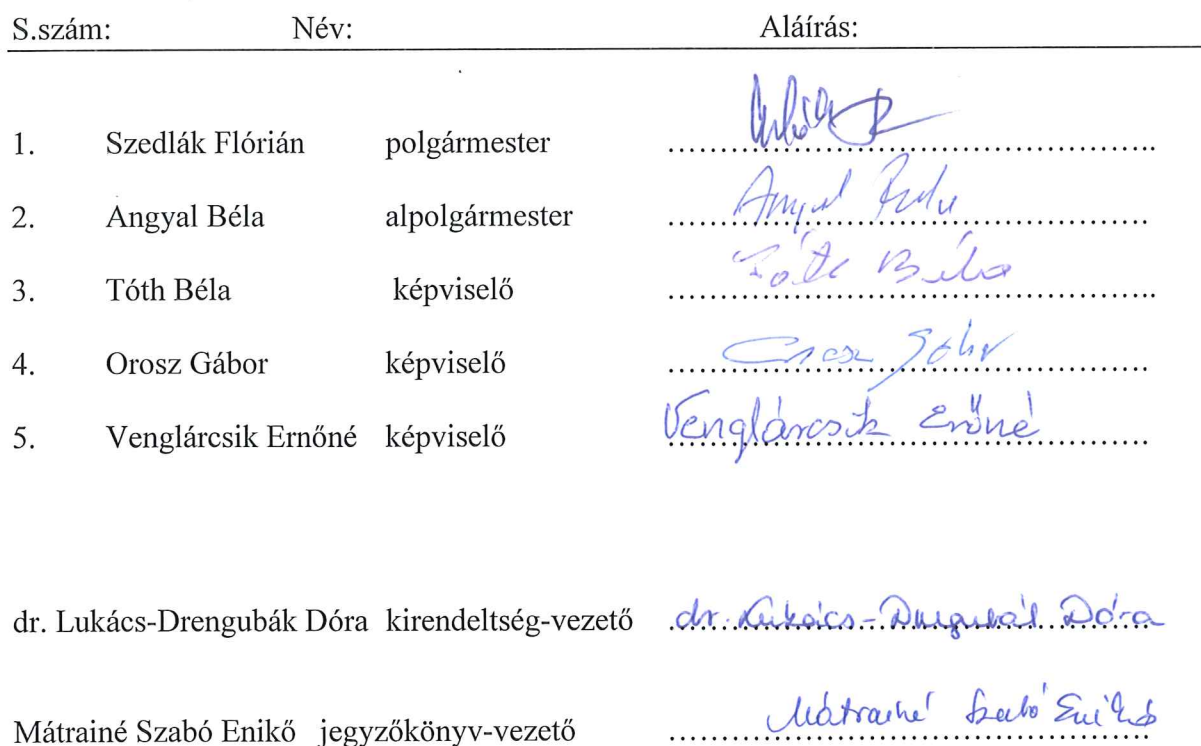 S.szám: Név: Aláírás:
1. Szedlák Flórián polgármester ........................................
2. Angyal Béla alpolgármester Angyal Béla
3. Tóth Béla képviselő Tóth Béla
4. Orosz Gábor képviselő Orosz Gábor
5. Venglárcsik Ernőné képviselő Venglárcsik Ernőné
dr. Lukács-Drengubák Dóra kirendeltség-vezető dr. Lukács-Drengubák Dóra
Mátrainé Szabó Enikő jegyzőkönyv-vezető Mátrainé Szabó Enikő